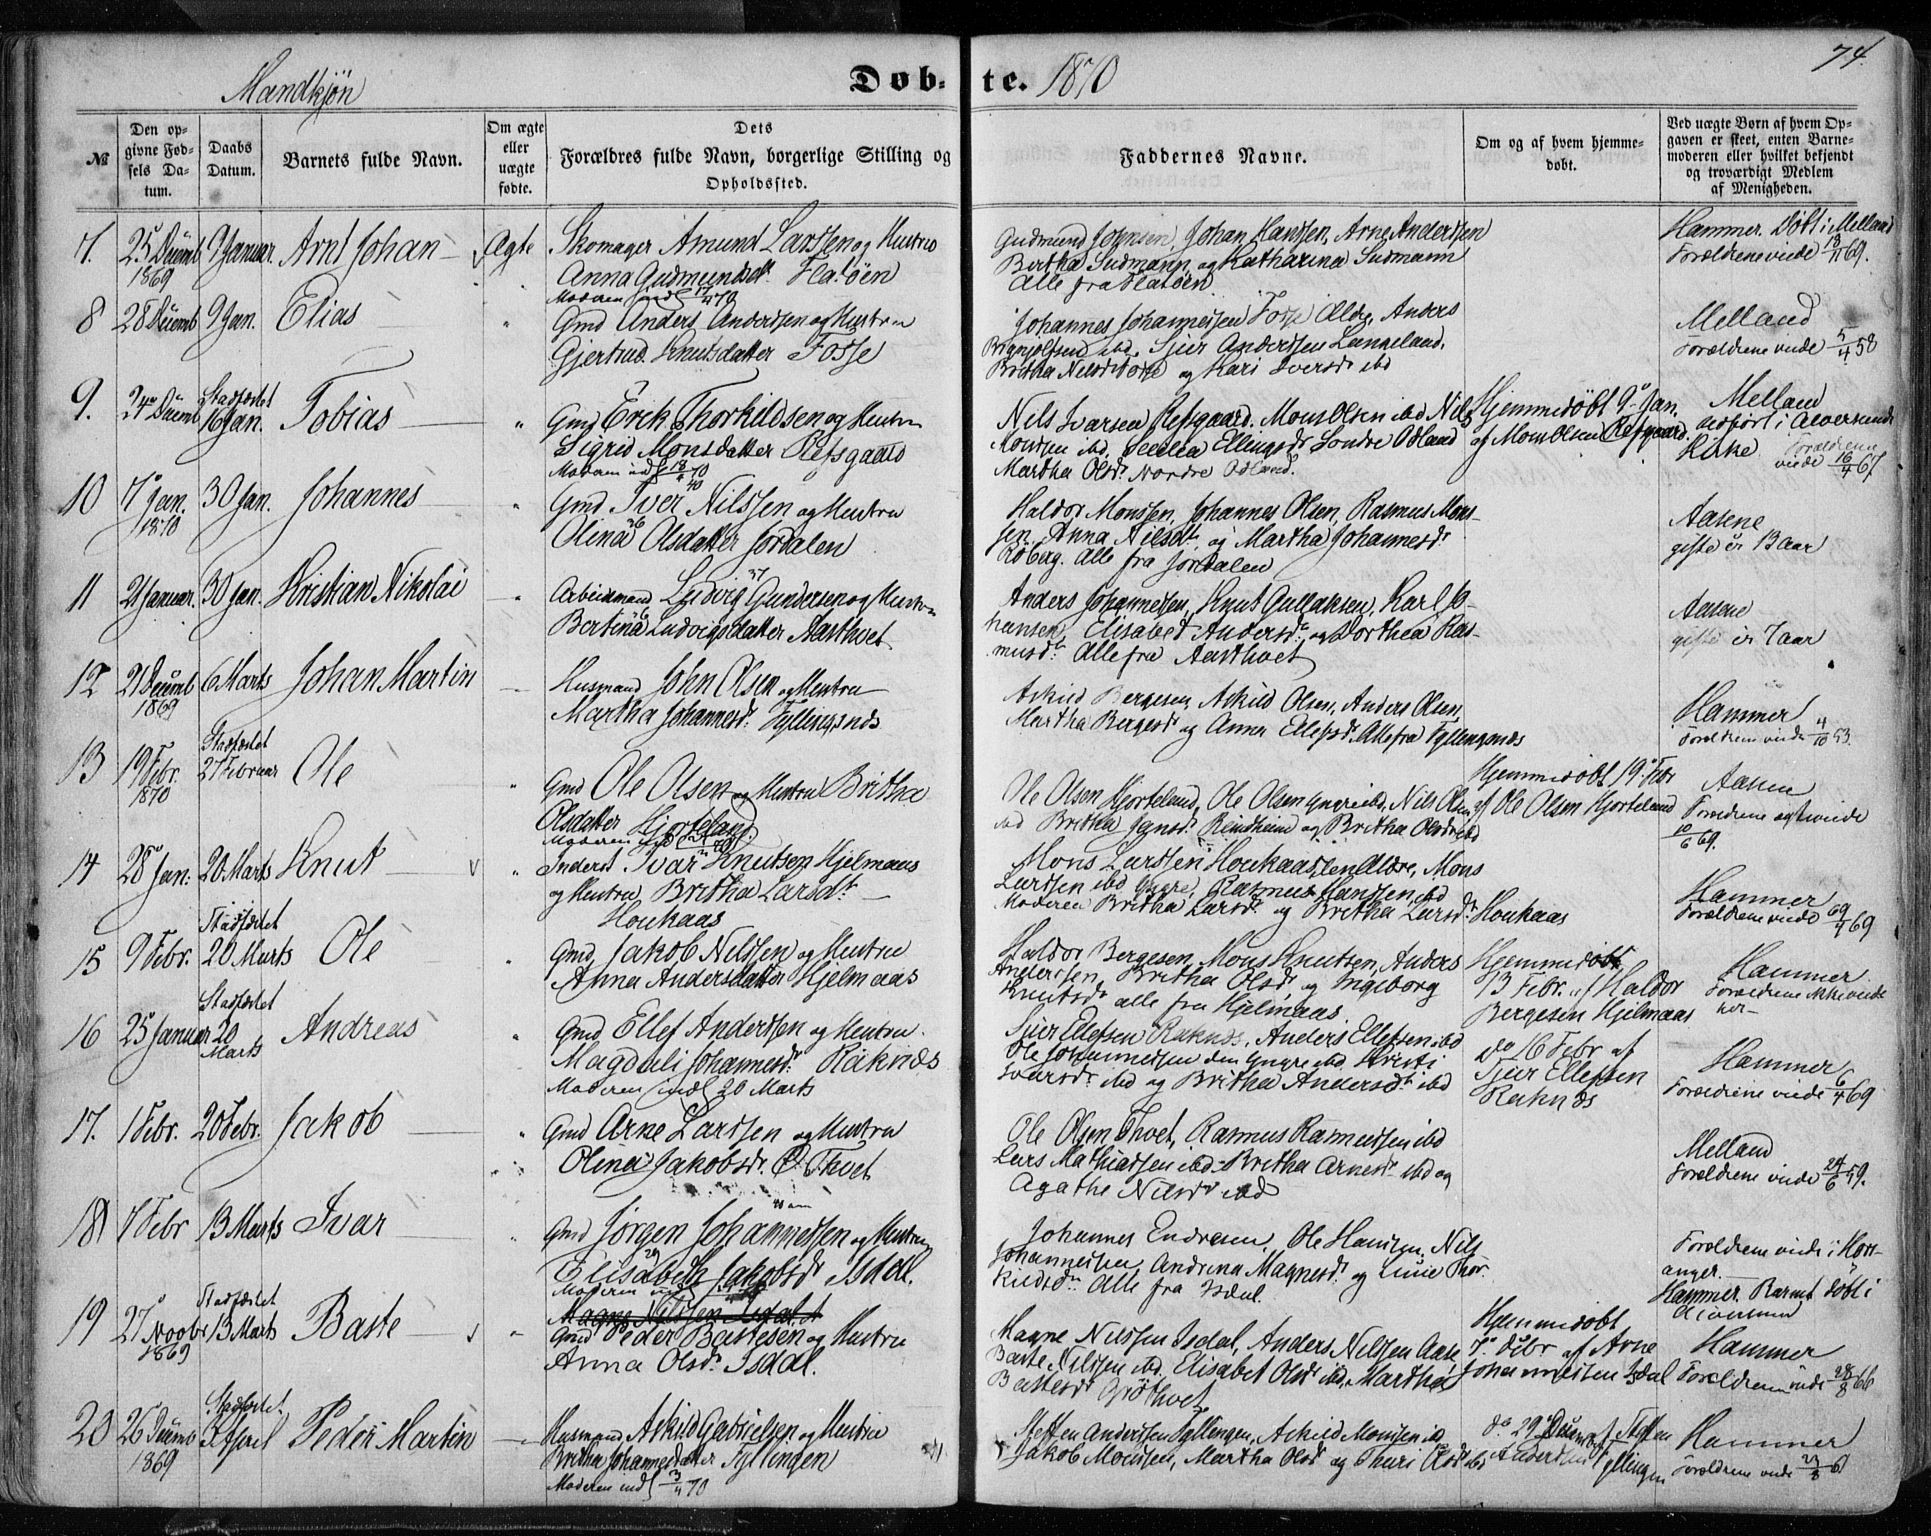 74.
Mandkjön
Døb-te. 1870
№
Den opgivne Fødsels Datum.
Daabs Datum.
Barnets fulde Navn.
Om ægte eller uægte fødte.
Dets Forældres fulde Navn, borgerlige Stilling og Opholdssted.
Faddernes Navne.
Om og af hvem hjemmedøbt.
Ved uægte Børn af hvem Opgaven er skeet, enten Barnemoderen eller hvilket bekjendt og troværdigt Medlem af Menigheden.
7. 25 Decemb 1869 9 Januar. Arnt Johan Ægte
Skomager Amund Larssen og Hustru
Anna Gudmundsdt. Flatöen
Moderen indl 17/4 70
Gudmund Johnsen, Johan Hanssen, Arne Anderssen
Bertha Sudmann og Katharina Sudmann
Alle fra Flatöen
Hammer. Døbt i Melland
Forældrene viede 18/11 69.
8 28 Decemb 9 Jan. Elias
Gmd Anders Anderssen og Hustru
Gjertrud Knutsdatter Fosse
Johannes Johannessen Fosse Ældre, Anders
Brynjolfsen ibd. Sjur Anderssen Langeland,
Britha Nilsdt Fosse og Kari Iversdt ibd
Melland
Forældrene viede 5/4 58
9. 24 Decemb Stadfæstet 16 Jan. Tobias
Gmd Erik Thorkildsen og Hustru
Sigrid Monsdatter Refsgaard
Nils Ivarsen Refsgaard. Mons Olsen ibd Nils
Monsen ibd, Cecilia Ellingsdt Søndre Odland
Martha Olsdt Nordre Odland.
Hjemmedöbt 9 Jan.
af Mons Olsen Refsgaard.
Melland
udført i Alversunds
Kirke Forældrene
viede 16/4 67
10 7 Jan. 1870 30 Jan. Johannes
Gmd Iver Nilssen og Hustru
Olina Olsdatter Jordalen
Haldor Monssen, Johannes Olsen, Rasmus Mons-
sen, Anna Nilsdt. og Martha Johannesdt
Röbag. Alle fra Jordalen
Aasene
gifte er 13 aar
11 21 Januar. 30 Jan. Kristian Nikolai
Arbeidsmand Ludvig Gundersen og Hustru
Bertina Ludvigsdatter Aastvet
Anders Johannessen, Knut Gullaksen, Karl Jo-
hansen, Elisabet Andersdt. og Dorthea Ras-
musdt. Alle fra Aastvet
Aasene
gifte er 7 aar
12 21 Decemb 1869 6 Marts Johan Martin
Husmand John Olsen og Hustru
Martha Johannesdt. Fyllingsnes
Askild Bergesen, Askild Olsen, Anders Olsen,
Martha Bergesdt og Anna Ellefsdt. Alle fra Fyllingsnes
Hammer
Forældrene viede 4/10 53.
13 19 Febr. 1870 Stadfæstet 27 Februar Ole
Gmd Ole Olsen og Hustru Britha
Olsdatter Hjorteland
Ole Olsen Hjorteland, Ole Olsen yngre ibd, Nils Olsen
ibd Britha Jensdt. Reindheim og Britha Olsdt ibd
Hjemmedöbt 19 Febr
af Ole Olsen Hjorteland
Aasene
Forældrene ægteviede
10/6 69.
14 28 Jan. 20 Marts Knut
Inderst Ivar Knutsen Hjelmaas
og Hustru Britha Larsdt.
Houkaas
Mons Larssen Houkaas, den Ældre, Mons
Larssen ibd yngre, Rasmus Hanssen ibd
Moderen Britha Larsdt og Britha Larsdt. Houkaas
Hammer
Forældrene viede 69
15 9 Febr. Stadfæstet 20 Marts Ole
Gmd, Jakob Nilssen og Hustru
Anna Andersdatter Hjelmaas
Haldor Bergesen, Mons Knutsen, Anders
Anderssen, Britha Olsdt og Ingeborg
Knutsdt alle fra Hjelmaas
Hjemmedöbt
13 Febr. af Haldor
Bergesen Hjelmaas
Hammer
Forældrene ikke viede
her
16 25 Januar Stadfæstet 20 Marts Andreas
Gmd Ellef Anderssen og Hustru
Magdeli Johannesdt. Raknes
Moderen indl 20 Marts
Sjur Ellefsen Raknes, Anders Ellefsen ibd
Ole Johannessen den yngre ibd Kristi
Ivarsdt ibd og Britha Andersdt. ibd
do 16 Febr af
Sjur Ellefsen
Raknes
Hammer
Forældrene viede 6/4 69
17. 1 Febr. 20 Febr. Jakob
Gmd Arne Larssen og Hustru
Olina Jakobsdt. Tvet
Ole Olsen Tvet, Rasmus Rasmussen ibd
Lars Mathiassen ibd Britha Arnesdt ibd og
Agathe Nilsdt ibd
Melland
Forældrene viede 24/6 59.
18 7 Febr 13 Marts Ivar
Gmd Jörgen Johannessen og Hustru
Elisabeth Jakobsdt Isdal.
Johannes Endresen, Ole Hanssen, Nils
Johannessen, Andrina Magnesdt. og Lucie Thor-
kildsdt. Alle fra Isdal.
Forældrene viede i Hos-
anger.
Hammer. Barnet døbt i
Alversund
19 27 Novbr 1869 Stadfæstet 13 Marts Baste
Magne Nilssen Isdal
Gmd Peder Bastesen og Hustru
Anna Olsdt. Isdal.
Magne Nilssen Isdal, Anders Nilssen Aase
Baste Nilssen ibd. Elisabet Olsdt ibd, Martha
Bastesdt
Hjemmedöbt
7 Debr af Arne
Johannessen Isdal
Hammer
Forældrene viede 28/8 66
20 26 Decemb 1869 Stadfæstet April Peder Martin
Husmand Askild Gabrielsen og Hustru
Britha Johannesdatter Fyllingen
Moderen indl 3/4 70
Steffen Anderssen Fyllingen, Askild Monssen ibd
Jakob Monssen, Martha Olsdt og Thuri Olsdt ibd
do 29 Decemb af Steffen
Anderssen Fyllingen
Hammer
Forældrene viede